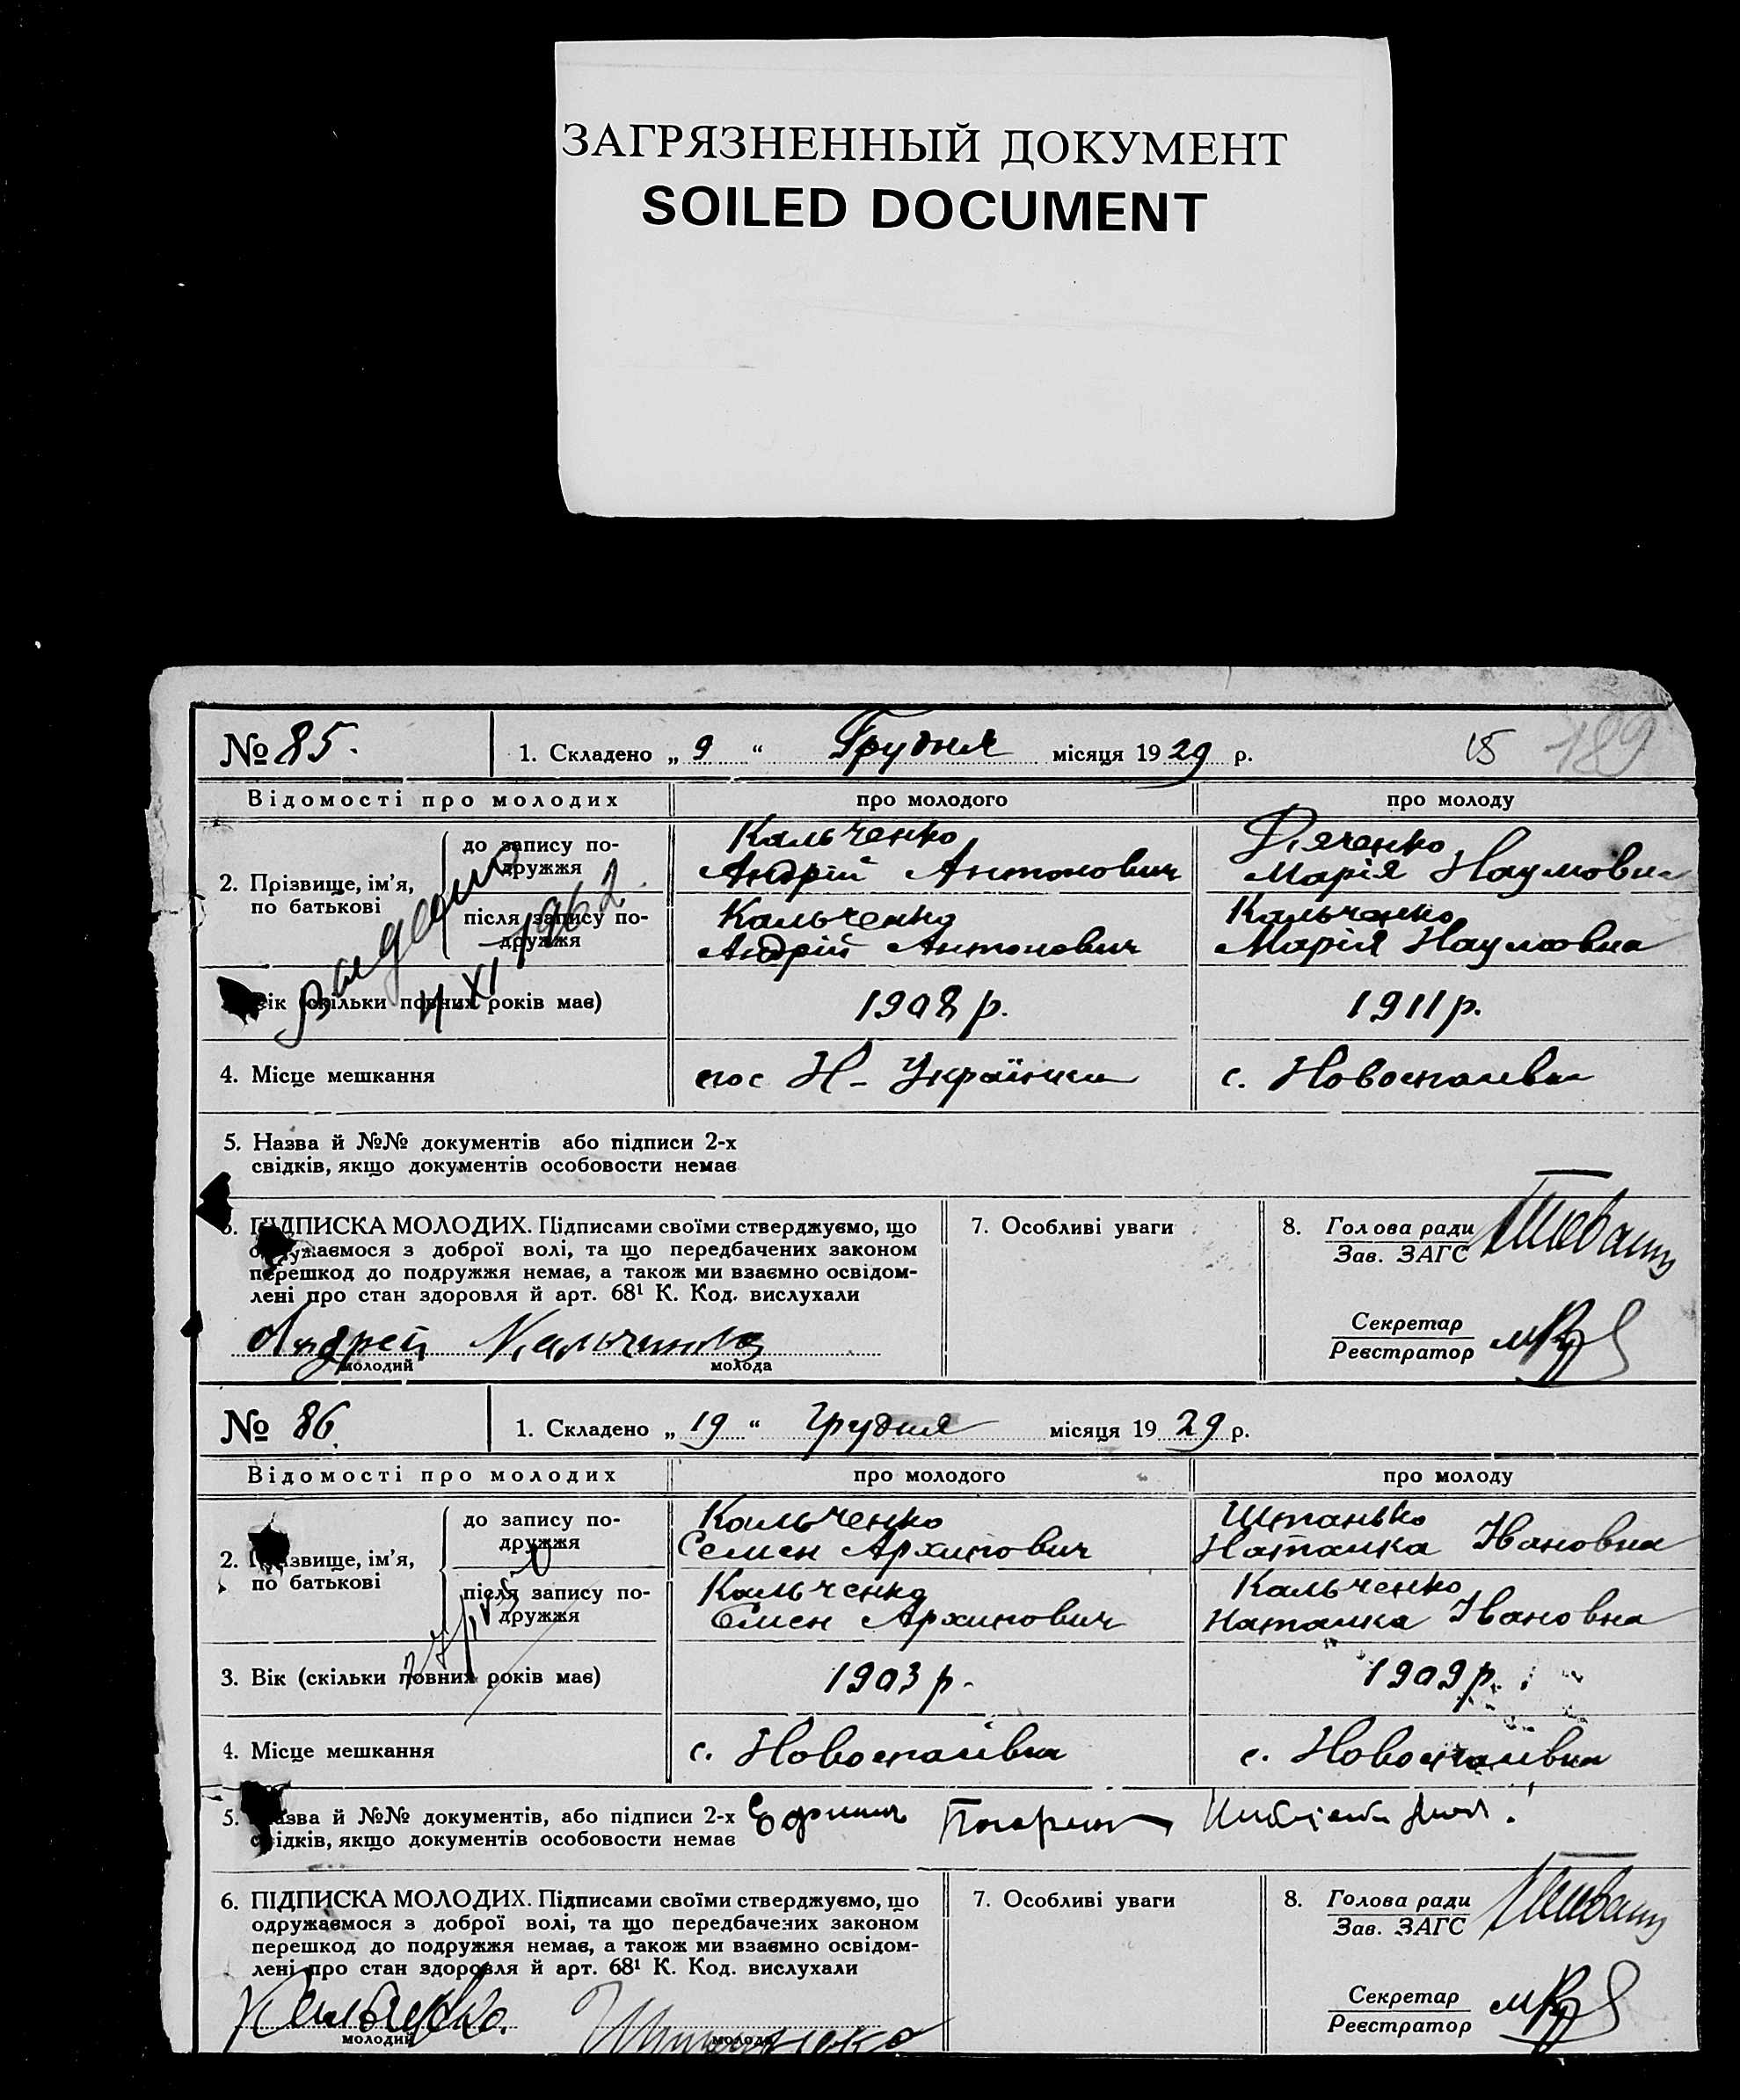 ЗАГРЯЗНЕННЫЙ ДОКУМЕНТ
SOILED DOCUMENT
189
№ 85. 1. Складено „ 9 “ Грудня місяця 1929 р. 15
Відомості про молодих про молодого про молоду
2. Прізвище, ім’я, по батькові
до запису по-
дружжя
Кальченко
Андрій Антонович
Дяченко
Марія Наумовна
після запису по-
дружжя
Кальченко
Андрій Антонович
Кальченко
Марія Наумовна
XI 1962
вік (скільки повних років має) 1908 р. 1911 р.
4. Місце мешкання пос Н-Українка с. Новоспаівка
5. Назва й №№ документів або підписи 2-х
свідків, якщо документів особовости немає
6. ПІДПИСКА МОЛОДИХ. Підписами своїми стверджуємо, що
одружаємося з доброї волі, та що передбачених законом
перешкод до подружжя немає, а також ми взаємно освідом-
лені про стан здоровля й арт. 68¹ К. Код. вислухали
Андрей
молодий молода
7. Особливі уваги
8. Голова ради
Зав. ЗАГС
Секретар
Реєстратор
№ 86. 1. Складено „ 19 “ Грудня місяця 1929 р.
Відомості про молодих про молодого про молоду
2. Прізвище, ім’я,
по батькові
до запису по-
дружжя
Кальченко
Семен Архипович
Штанько
Наталка Івановна
після запису по-
дружжя
Кальченко
Семен Архипович
Кальченко
Наталка Івановна
3. Вік (скільки повних років має) 1903 р. 1909 р.
4. Місце мешкання с. Новоспаівка с. Новоспаівка
5. Назва й №№ документів, або підписи 2-х
свідків, якщо документів особовости немає
6. ПІДПИСКА МОЛОДИХ. Підписами своїми стверджуємо, що
одружаємося з доброї волі, та що передбачених законом
перешкод до подружжя немає, а також ми взаємно освідом-
лені про стан здоровля й арт. 68¹ К. Код. вислухали
Кальченко.
молодий молода
7. Особливі уваги
8. Голова ради
Зав. ЗАГС
Секретар
Реєстратор